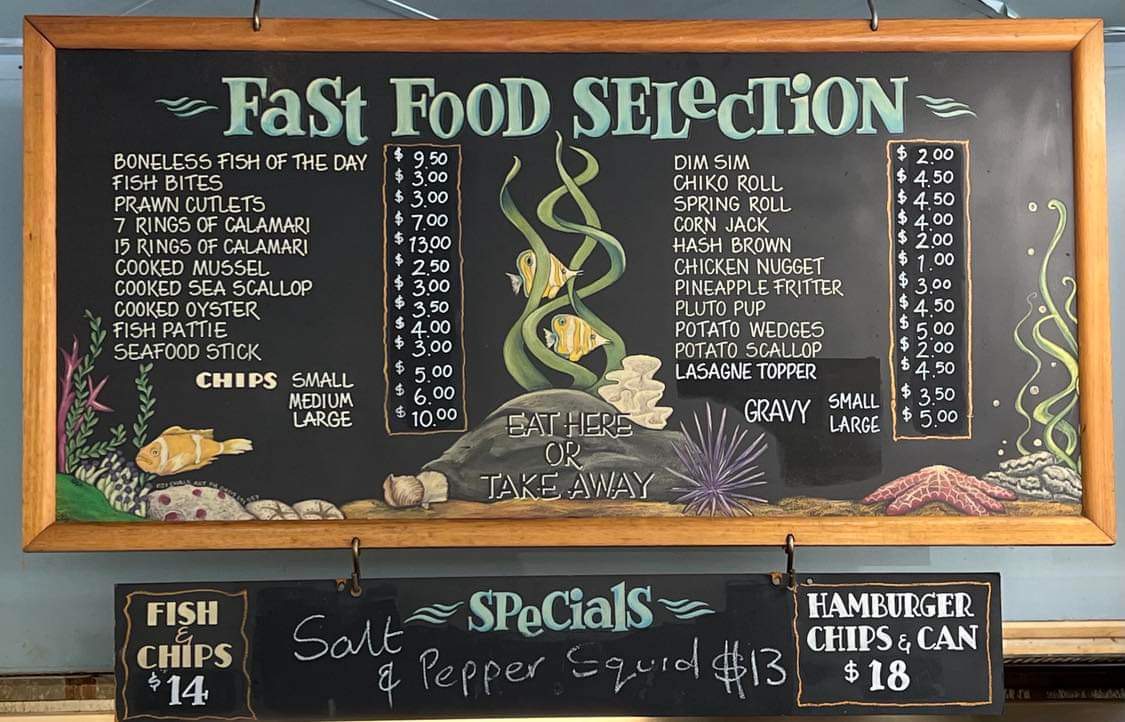 FaSt FOOD SELecTiON
BONELESS FISH OF THE DAY $ 9.50
FISH BITES $ 3.00
PRAWN CUTLETS $ 3.00
7 RINGS OF CALAMARI $ 7.00
15 RINGS OF CALAMARI $ 13.00
COOKED MUSSEL $ 2.50
COOKED SEA SCALLOP $ 3.00
COOKED OYSTER $ 3.50
FISH PATTIE $ 4.00
SEAFOOD STICK $ 3.00
CHIPS SMALL $ 5.00
MEDIUM $ 6.00
LARGE $ 10.00
DIM SIM $ 2.00
CHIKO ROLL $ 4.50
SPRING ROLL $ 4.50
CORN JACK $ 4.00
HASH BROWN $ 2.00
CHICKEN NUGGET $ 1.00
PINEAPPLE FRITTER $ 3.00
PLUTO PUP $ 4.50
POTATO WEDGES $ 5.00
POTATO SCALLOP $ 2.00
LASAGNE TOPPER $ 4.50
GRAVY SMALL $ 3.50
LARGE $ 5.00
EAT HERE
OR
TAKE AWAY
FISH
&
CHIPS
$14
SPeCialS
Salt
& Pepper Squid $13
HAMBURGER
CHIPS & CAN
$18